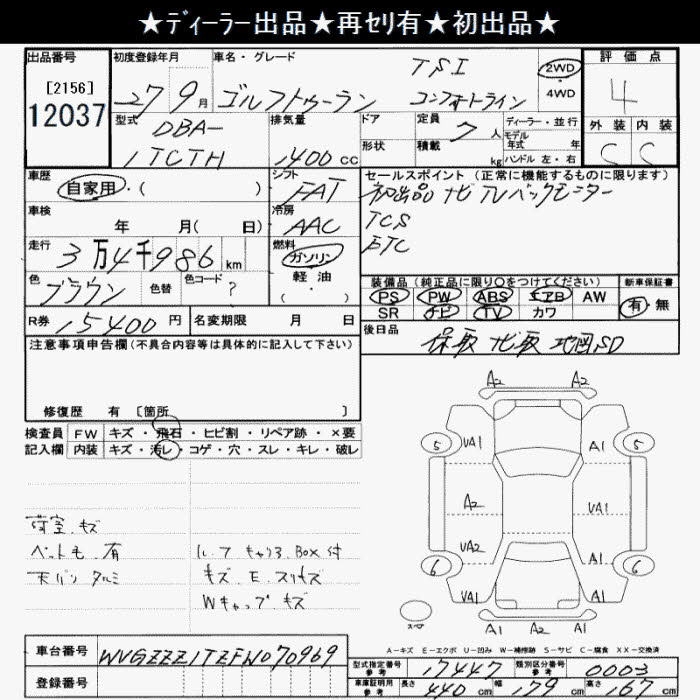 ★ディーラー出品★再セリ有★初出品★
出品番号 初度登録年月 車名・グレード 評価点
[2156] TSI 2WD・4WD 4
12037 27 9月 ゴルフトゥーラン コンフォートライン
型式 排気量 ドア 定員 ディーラー・並行 外装 内装
DBA- 7人 モデル年式 年
1TCTH 1400cc 形状 積載 kg ハンドル 左・右 C C
車歴 シフト セールスポイント (正常に機能するものに限ります)
自家用・( ) FAT 初出品 ナビ TV バックモニター
車検 年 月( 日) 冷房 AAC TCS
ETC
走行 3万4千986km 燃料 ガソリン 軽・油 ( ・ )
装備品 (純正品に限り○をつけてください) 新車保証書
色 ブラウン 色替 色コード ?
PS PW ABS エアB AW 有・無
SR ナビ TV カワ
R券 15400円 名変期限 月 日
後日品 保取 ナビ取 地図SD
注意事項申告欄(不具合内容等は具体的に記入して下さい)
修復歴 有 [箇所 ]
検査員 FW キズ・飛石・ヒビ割・リペア跡・×要
記入欄 内装 キズ・汚レ・コゲ・穴・スレ・キレ・破レ
荷室、キズ
ペット毛、有
天バリ タルミ
ルーフキャリア、BOX付
キズ、E、スリキズ
Wキャップ、キズ
A2 A2
5 VA1 A1 5
A2 VA1
VA2 A1
6 VA1 A1 6
A1 A1 A1
スペア
A-キズ E-エクボ U-凹み W-補修跡 S-サビ C-腐食 XX-交換済
車台番号 WVGZZZ1TZFW070969
型式指定番号 参考 17447 類別区分番号 参考 0003
登録番号
車庫証明用 参考 長さ 440cm 幅 179cm 高さ 167cm